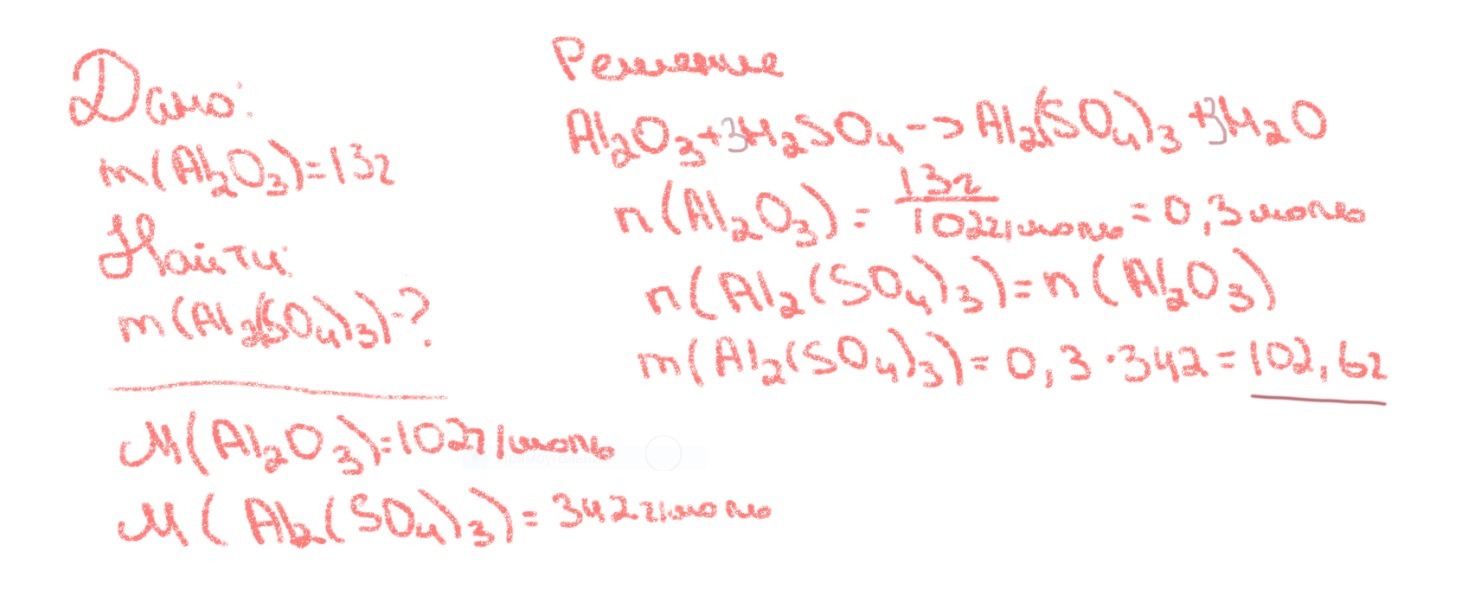 Дано:
m(Al₂O₃)=13г
Найти:
m(Al₂(SO₄)₃)-?
M(Al₂O₃)=102г/моль
M(Al₂(SO₄)₃)=342г/моль
Решение
Al₂O₃+3H₂SO₄->Al₂(SO₄)₃+3H₂O
n(Al₂O₃)=13г/102г/моль=0,3моль
n(Al₂(SO₄)₃)=n(Al₂O₃)
m(Al₂(SO₄)₃)=0,3·342=102,6г